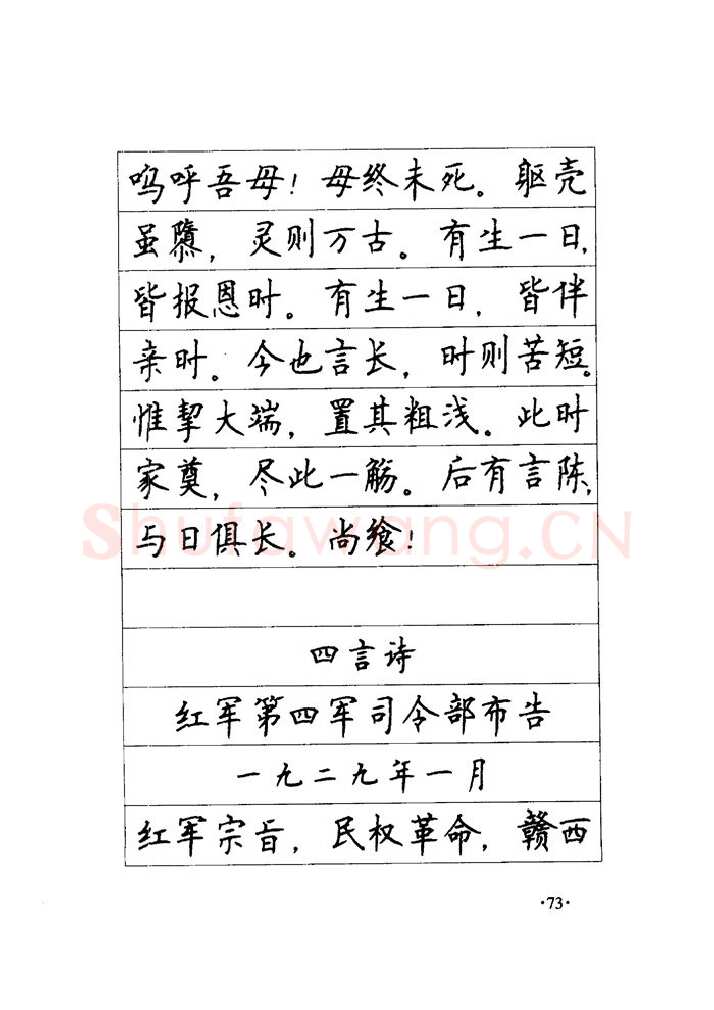 呜呼吾母！母终未死。躯壳
虽隳，灵则万古。有生一日，
皆报恩时。有生一日，皆伴
亲时。今也言长，时则苦短。
惟挈大端，置其粗浅。此时
家奠，尽此一觞。后有言陈，
与日俱长。尚飨！
Shufawang.CN
四言诗
红军第四军司令部布告
一九二九年一月
红军宗旨，民权革命，赣西
·73·